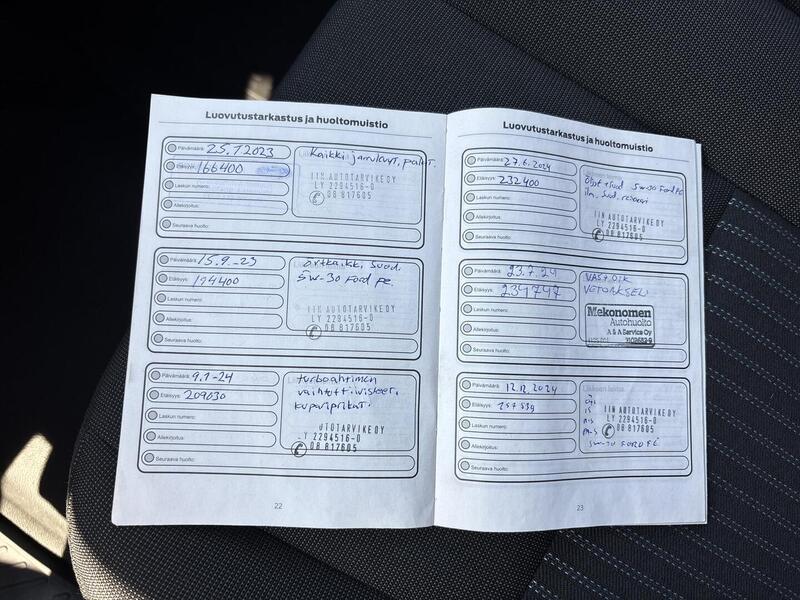 Luovutustarkastus ja huoltomuistio
Päivämäärä: 25.7 2023
Etäisyys: 166400
Laskun numero:
Allekirjoitus:
Seuraava huolto:
Kaikki jarrulevyt, palat.
IIN AUTOTARVIKE OY
LY 2294516-0
08 817605
Päivämäärä: 15.9-23
Etäisyys: 174400
Laskun numero:
Allekirjoitus:
Seuraava huolto:
suod.
5w-30 Ford
IIN AUTOTARVIKE OY
LY 2294516-0
08 817605
Päivämäärä: 9.1-24
Etäisyys: 209030
Laskun numero:
Allekirjoitus:
Seuraava huolto:
turboahtimen
vaihto
UTOTARVIKE OY
LY 2294516-0
08 817605
22
Luovutustarkastus ja huoltomuistio
Päivämäärä: 27.6.2024
Etäisyys: 232400
Laskun numero:
Allekirjoitus:
Seuraava huolto:
Öljyt + suod 5w-30 Ford
ilm. suod.
IIN AUTOTARVIKE OY
LY 2294516-0
08 817605
Päivämäärä: 23.7.24
Etäisyys: 234747
Laskun numero:
Allekirjoitus:
Seuraava huolto:
VETOAKSELI
Mekonomen
Autohuolto
A & A Service Oy
3102682-9
Päivämäärä: 12.12.2024
Etäisyys:
Laskun numero:
Allekirjoitus:
Seuraava huolto:
IIN AUTOTARVIKE OY
LY 2294516-0
08 817605
5w-30 FORD
23